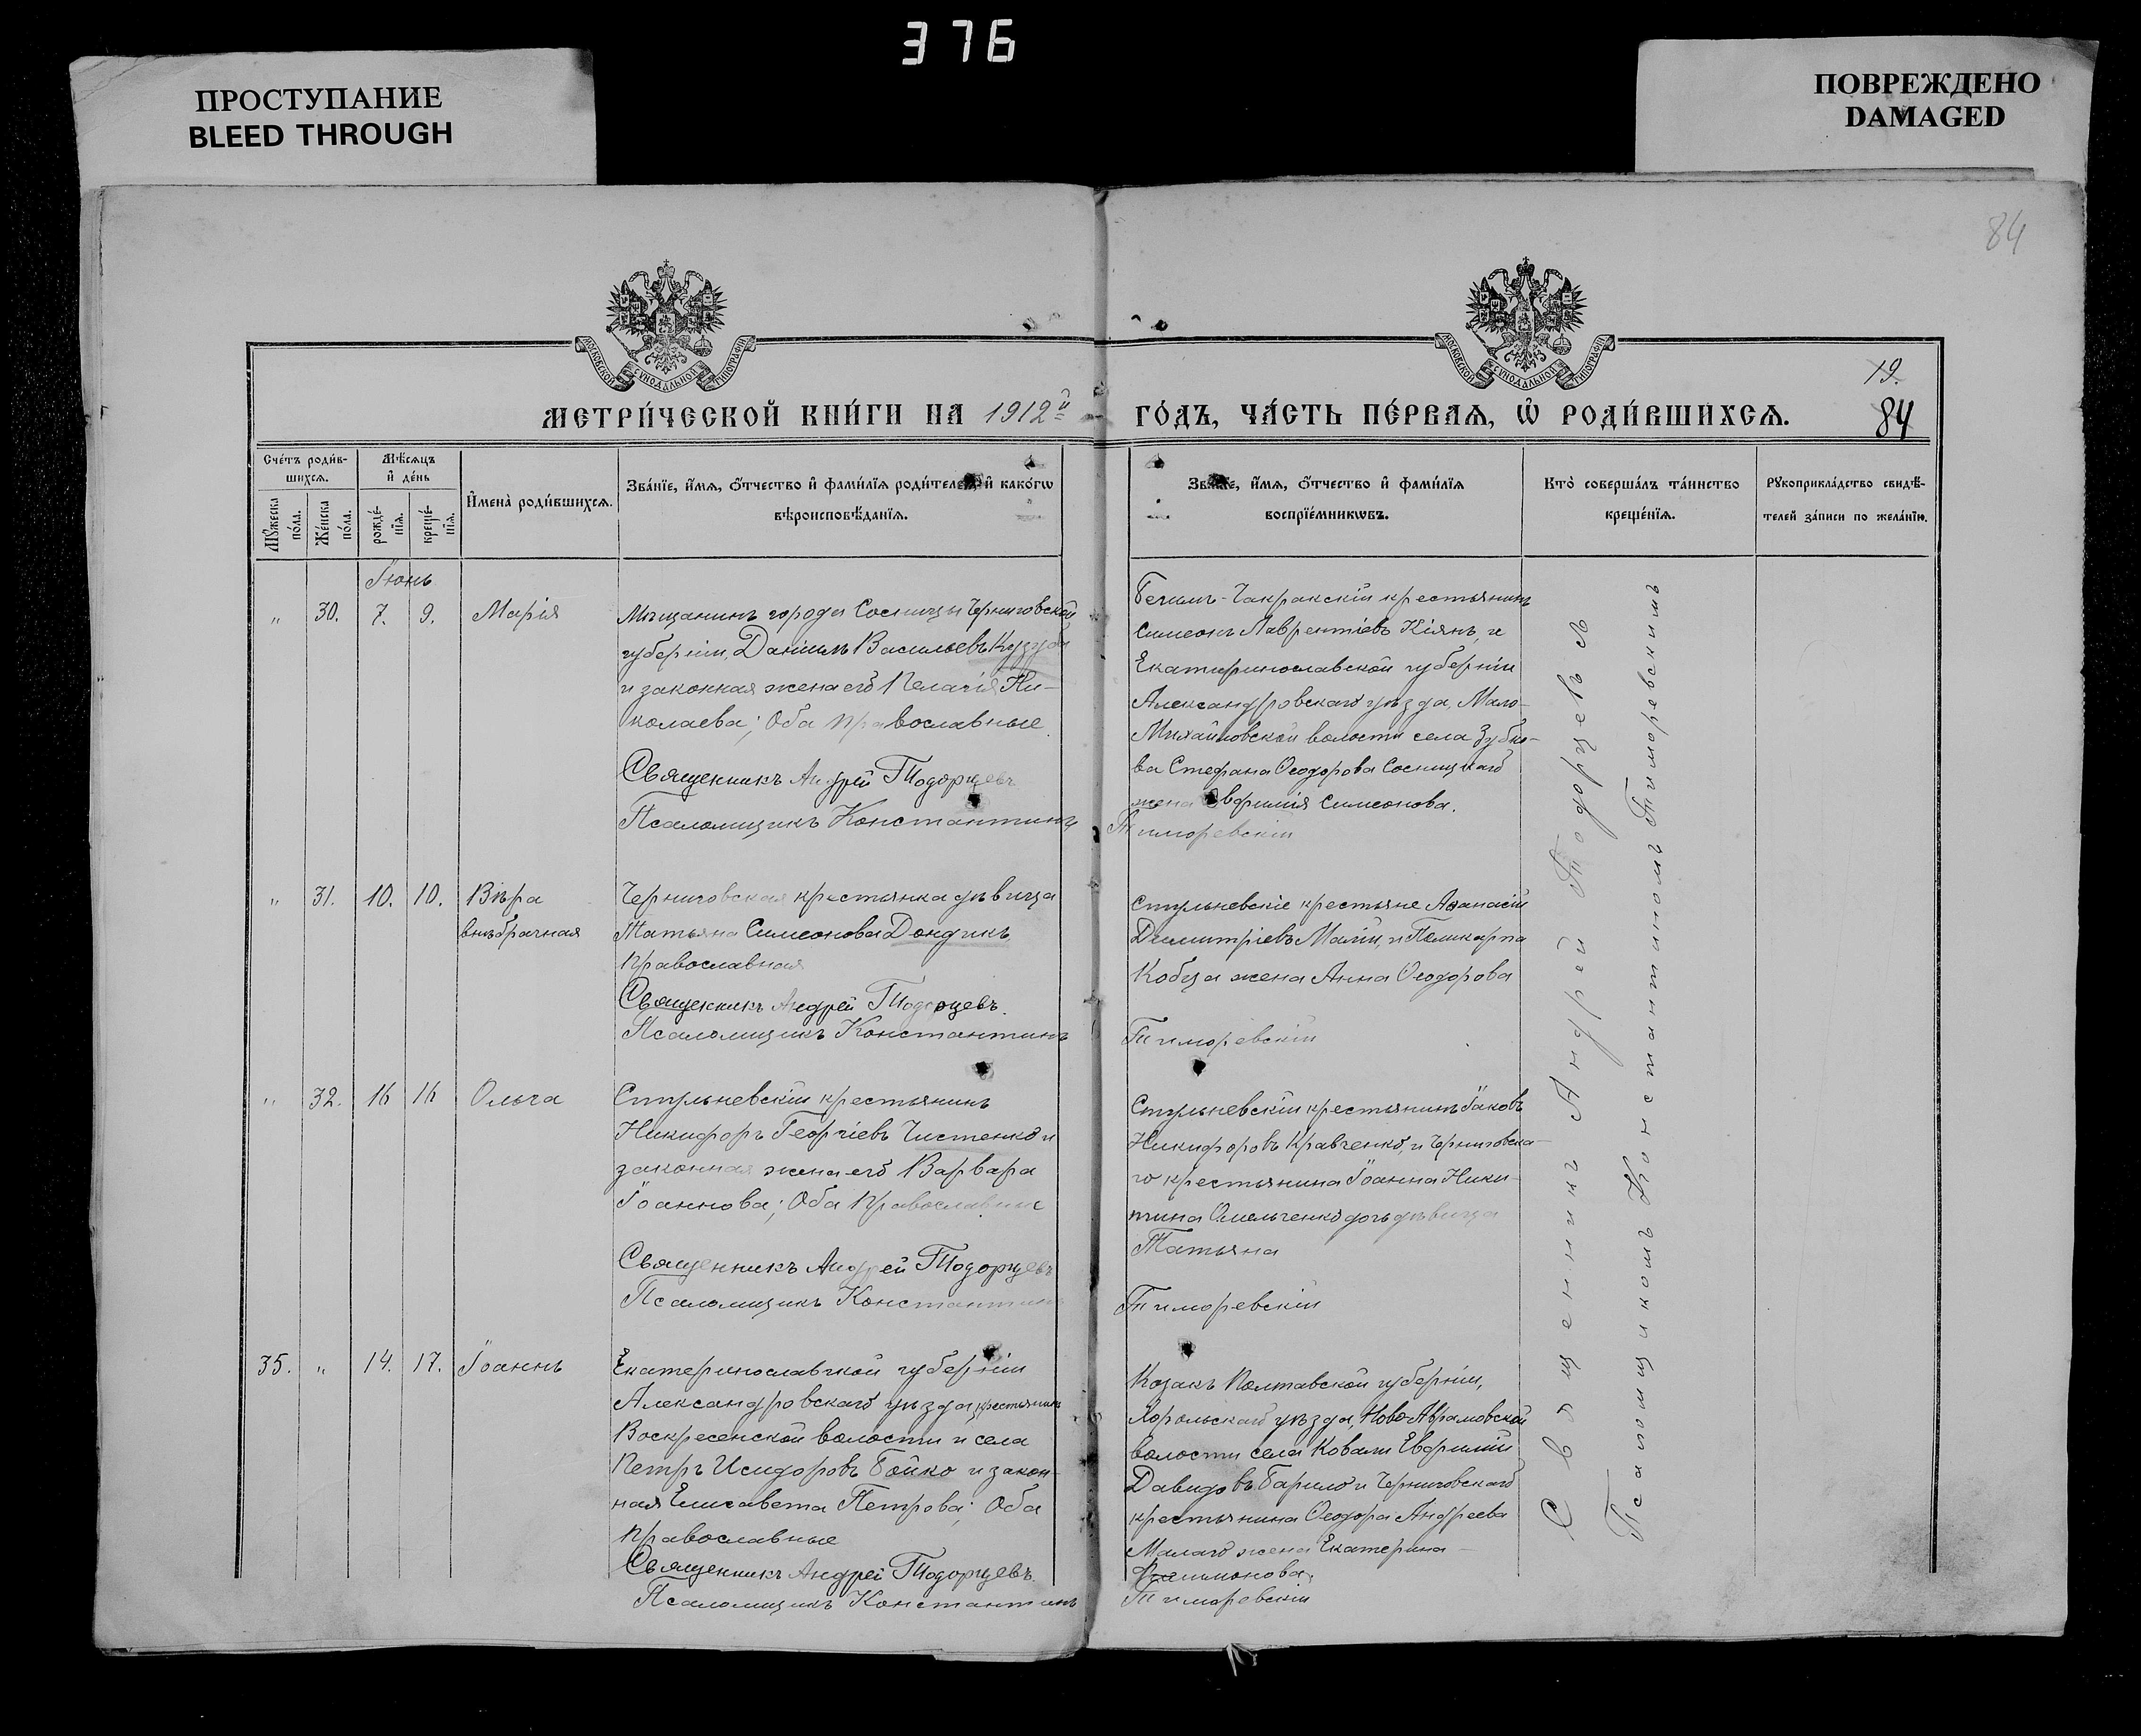 376
ПРОСТУПАНИЕ
BLEED THROUGH
ПОВРЕЖДЕНО
DAMAGED
84
МОСКОВСКОЙ СѴНОДАЛЬНОЙ ТИПОГРАФІИ
МОСКОВСКОЙ СѴНОДАЛЬНОЙ ТИПОГРАФІИ
19.
МЕТРИ́ЧЕСКОЙ КНИ́ГИ НА 1912й
ГО́ДЪ, ЧА́СТЬ ПЕ́РВАѦ, Ѡ҆ РОДИ́ВШИХСѦ.
84
Сче́тъ роди́в-
шихсѧ.
Мꙋ́жеска по́ла.
Же́нска по́ла.
Мѣ́сѧцъ
и҆ де́нь
рожде́-нїѧ.
креще́-нїѧ.
И҆мена̀ роди́вшихсѧ.
Зва́нїе, и҆́мѧ, ѻ҆́тчество и҆ фами́лїѧ роди́телей, и҆ како́гѡ
вѣроисповѣ́данїѧ.
Зва́нїе, и҆́мѧ, ѻ҆́тчество и҆ фами́лїѧ
воспрїе́мникѡвъ.
Кто̀ соверша́лъ та́инство
креще́нїѧ.
Рꙋкоприкла́дство свидѣ́-
телей за́писи по жела́нїю.
Іюнь
"
30.
7.
9.
Марія
Мѣщанинъ города Сосницы Черниговской
губерніи, Даніилъ Васильевъ
и законная жена его Пелагія Ни-
колаева; Оба православные.
Священникъ Андрей Тодорцевъ
Псаломщикъ Константинъ
Бегимъ-Чакракскій крестьянинъ
Симеонъ Лаврентіевъ Кіянъ, и
Екатеринославской губерніи
Александровскаго уѣзда, Мало-
Михайловской волости села
Стефана Ѳеодорова Сосницкаго
жена Евфимія Симеонова.
Тиморевскій
"
31.
10.
10.
Вѣра
внѣбрачная
Черниговская крестьянка дѣвица
Татьяна Симеонова Дондикъ,
православная
Священникъ Андрей Тодорцевъ.
Псаломщикъ Константинъ
Стульневскіе крестьяне Аѳанасій
Димитріевъ Малій, и Поликарпа
Кобца жена Анна Ѳеодорова
Тиморевскій
"
32.
16
16
Ольга
Стульневскій крестьянинъ
Никифоръ Георгіевъ Чистенко и
законная жена его Варвара
Іоаннова; Оба православные
Священникъ Андрей Тодорцевъ
Псаломщикъ Константинъ
Стульневскій крестьянинъ Іаковъ
Никифоровъ Кравченко, и Черниговска-
го крестьянина Іоанна Ники-
тина Омельченко дочь дѣвица
Татьяна
Тиморевскій
35.
"
14.
17.
Іоаннъ
Екатеринославской губерніи
Александровскаго уѣзда крестьянинъ
Воскресенской волости и села
Петръ Исидоровъ Бойко и закон-
ная Елисавета Петрова; Оба
православные
Священникъ Андрей Тодорцевъ.
Псаломщикъ Константинъ
Козакъ Полтавской губерніи,
Хорольскаго уѣзда, Ново Аврамовской
волости села Ковали Евфимій
Давидовъ Гарило и Черниговскаго
крестьянина Ѳеодора Андреева
Малаго жена Екатерина
Филимонова,
Тиморевскій
Священникъ Андрей Тодорцевъ съ
Псаломщикомъ Константиномъ Тиморевскимъ